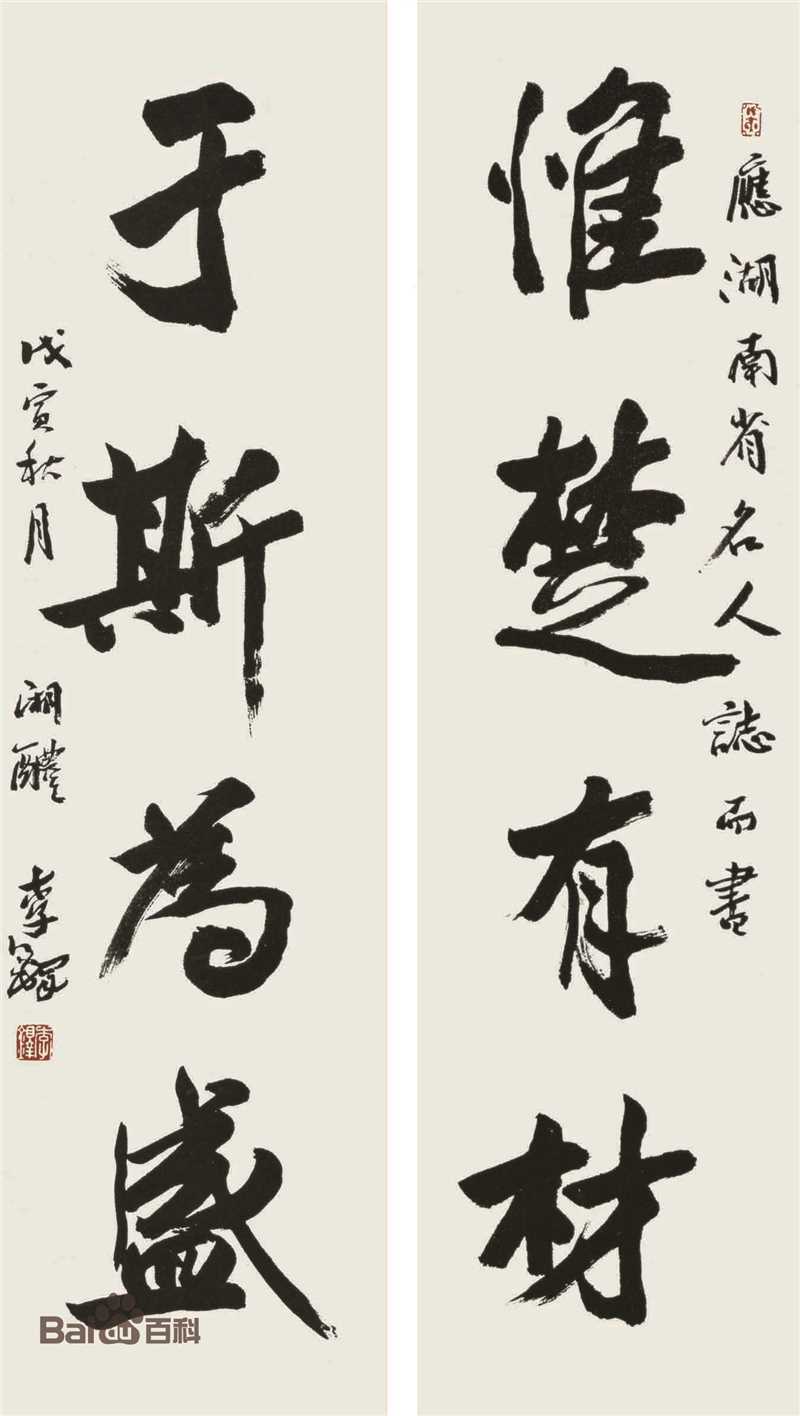 惟楚有材
應湖南省名人誌而書
于斯為盛
戊寅秋月
湘醴
李鐸
李鐸
Bai百科